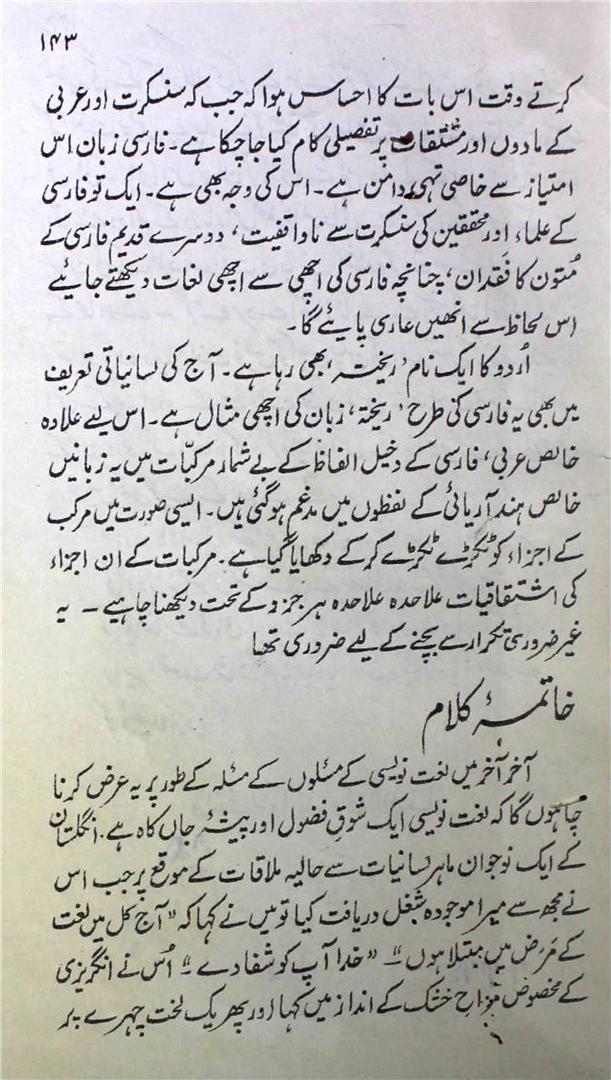 ۱۴۳
کرتے وقت اس بات کا احساس ہوا کہ جب کہ سنسکرت اور عربی
کے مادوں اور مشتقات پر تفصیلی کام کیا جا چکا ہے۔ فارسی زبان اس
امتیاز سے خاصی تہی دامن ہے۔ اس کی وجہ بھی ہے۔ ایک تو فارسی
کے علماء اور محققین کی سنسکرت سے ناواقفیت، دوسرے قدیم فارسی کے
متون کا فقدان، چنانچہ فارسی کی اچھی سے اچھی لغات دیکھتے جائیے
اس لحاظ سے انھیں عاری پائیے گا۔
اُردو کا ایک نام ’ریختہ‘ بھی رہا ہے۔ آج کی لسانیاتی تعریف
میں بھی یہ فارسی کی طرح ’ریختہ‘ زبان کی اچھی مثال ہے۔ اس لیے علادہ
خالص عربی، فارسی کے دخیل الفاظ کے بے شمار مرکبّات میں یہ زبانیں
خالص ہند آریائی کے لفظوں میں مدغم ہو گئی ہیں۔ ایسی صورت میں مرکب
کے اجزاء کو ٹکڑے ٹکڑے کر کے دکھایا گیا ہے۔ مرکبات کے ان اجزاء
کی اشتقاقیات علاحدہ علاحدہ ہر جزو کے تحت دیکھنا چاہیے ۔ یہ
غیر ضروری تکرار سے بچنے کے لیے ضروری تھا
خاتمۂ کلام
آخر آخر میں لغت نویسی کے مسئلوں کے مسئلہ کے طور پر یہ عرض کرنا
چاہوں گا کہ لغت نویسی ایک شوقِ فضول اور پیشۂ جاں کاہ ہے۔ انگلستان
کے ایک نوجوان ماہر لسانیات سے حالیہ ملاقات کے موقع پر جب اس
نے مجھ سے میرا موجودہ شغل دریافت کیا تو میں نے کہا کہ ”آج کل میں لغت
کے مَرَض میں مبتلا ہوں“۔ ”خدا آپ کو شفا دے“۔ اُس نے انگریزی
کے مخصوص مزاحِ خشک کے انداز میں کہا اور پھر یک لخت چہرے پر